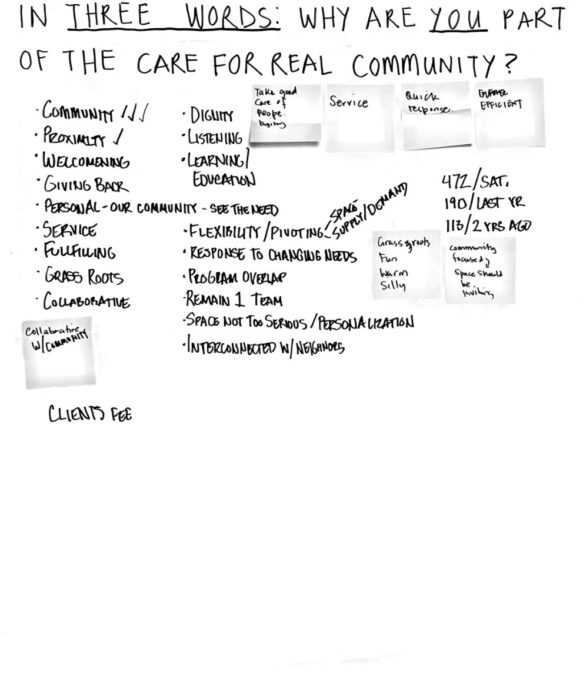 IN THREE WORDS: WHY ARE YOU PART
OF THE CARE FOR REAL COMMUNITY?
· COMMUNITY √√√
· PROXIMITY √
· WELCOMENING
· GIVING BACK
· PERSONAL - OUR COMMUNITY - SEE THE NEED
· SERVICE
· FULLFILLING
· GRASS ROOTS
· COLLABORATIVE
Collaborative
W/COMMUNITY
CLIENTS FEE
· DIGNITY
· LISTENING
· LEARNING/
EDUCATION
· FLEXIBILITY/PIVOTING - SPACE
SUPPLY/DEMAND
· RESPONSE TO CHANGING NEEDS
· PROGRAM OVERLAP
· REMAIN 1 TEAM
· SPACE NOT TOO SERIOUS/PERSONALIZATION
· INTERCONNECTED W/ NEIGHBORS
Take good
Care of
Service
Quick
response
EFFICIENT
472/SAT.
190/LAST YR
113/2 YRS AGO
Grassroots
Fun
Warm
Silly
Community
focused
Space should
be
inviting